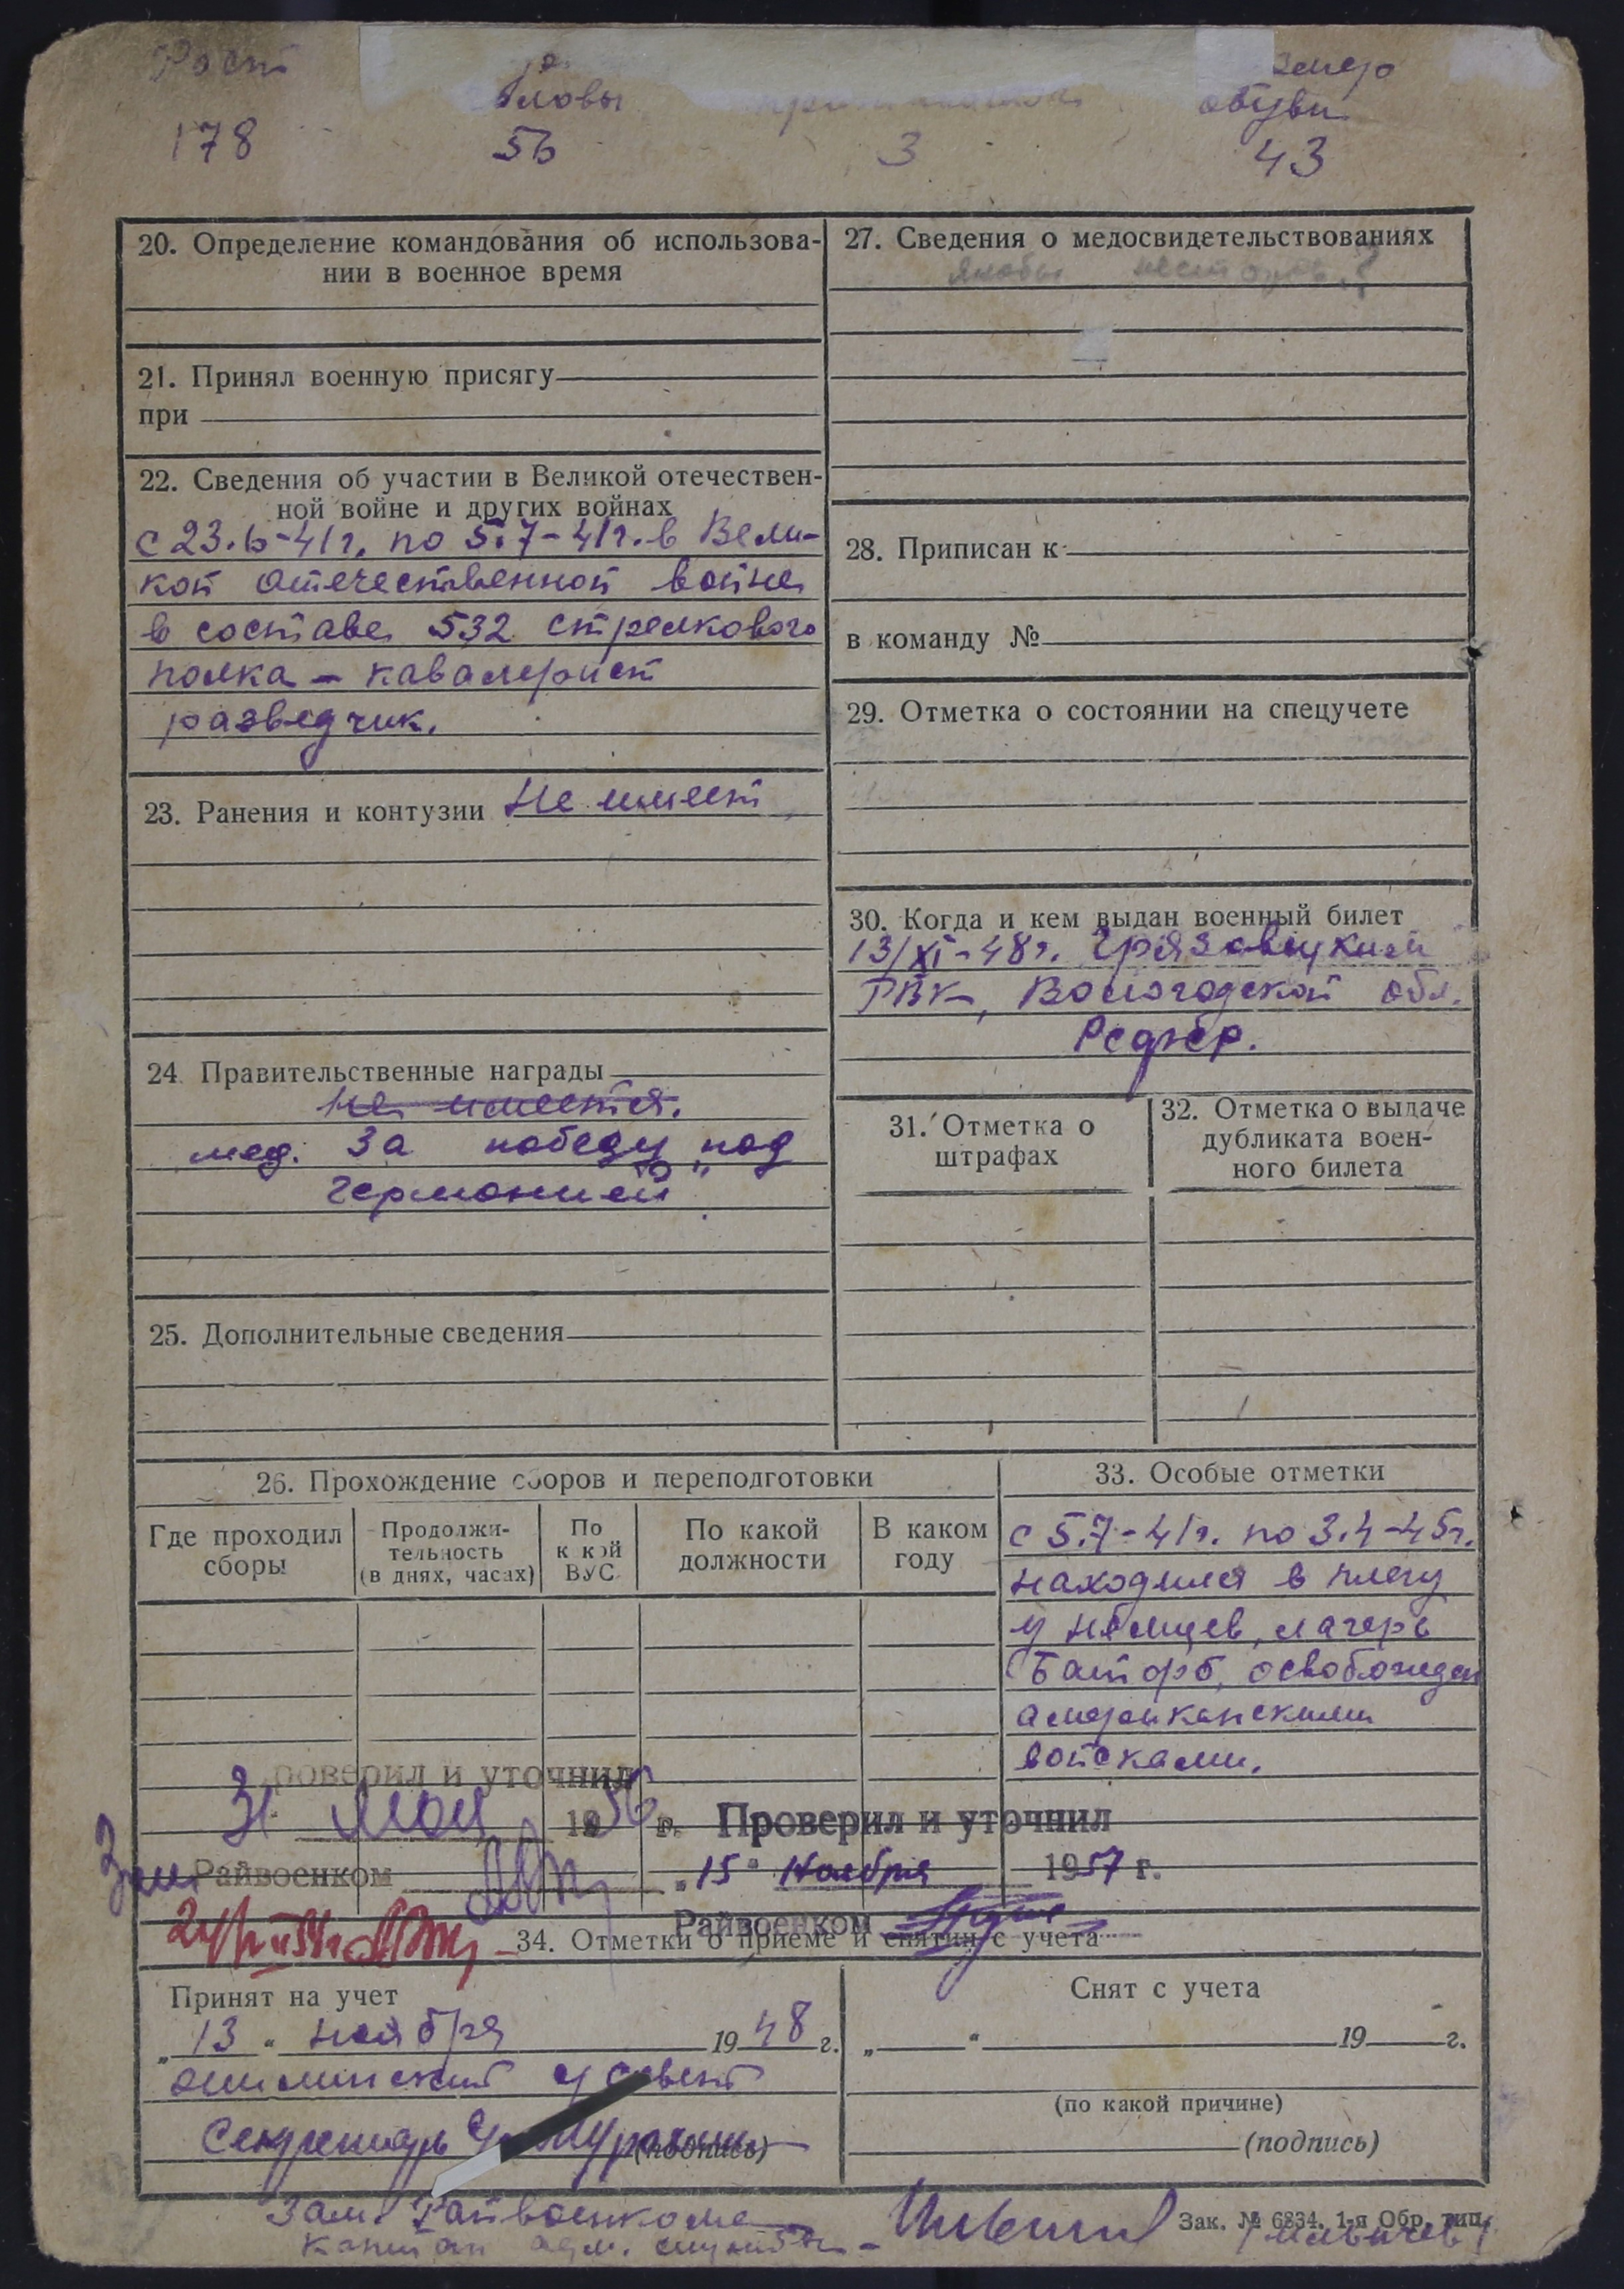 Рост
головы
размер
обуви
178 56 3 43
20. Определение командования об использова-
нии в военное время
21. Принял военную присягу
при
22. Сведения об участии в Великой отечествен-
ной войне и других войнах
с 23.6-41г. по 5.7-41г. в Вели-
кой отечественной войне
в составе 532 стрелкового
полка – кавалерист
разведчик.
23. Ранения и контузии Не имеет
24. Правительственные награды
не имеется.
мед. За победу над
Германией"
25. Дополнительные сведения
27. Сведения о медосвидетельствованиях
28. Приписан к
в команду №
29. Отметка о состоянии на спецучете
30. Когда и кем выдан военный билет
13/XI-48г. Грязовецким
РВК, Вологодской обл.
31. Отметка о
штрафах
32. Отметка о выдаче
дубликата воен-
ного билета
26. Прохождение сборов и переподготовки
Где проходил
сборы
Продолжи-
тельность
(в днях, часах)
По
какой
ВУС
По какой
должности
В каком
году
33. Особые отметки
с 5.7-41г. по 3.4-45г.
находился в плену
у немцев, лагерь
освобожден
американскими
войсками.
Проверил и уточнил
31 мая 1956 г.
Зам. Райвоенком
Проверил и уточнил
„15" Ноября 1957 г.
Райвоенком
34. Отметки о приеме и снятии с учета
Принят на учет
„13" ноября 1948 г.
Секретарь
(подпись)
Снят с учета
„ " 19 г.
(по какой причине)
(подпись)
Зам. Райвоенкома
капитан адм. службы –
Зак. № 6834. 1-я Обр. тип.